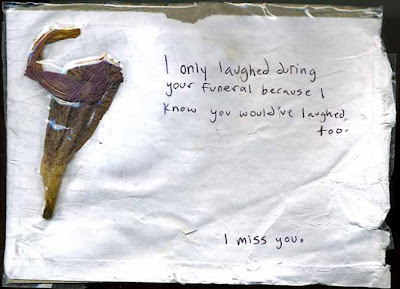 I only laughed during
your funeral because I
know you would've laughed
too.
I miss you.